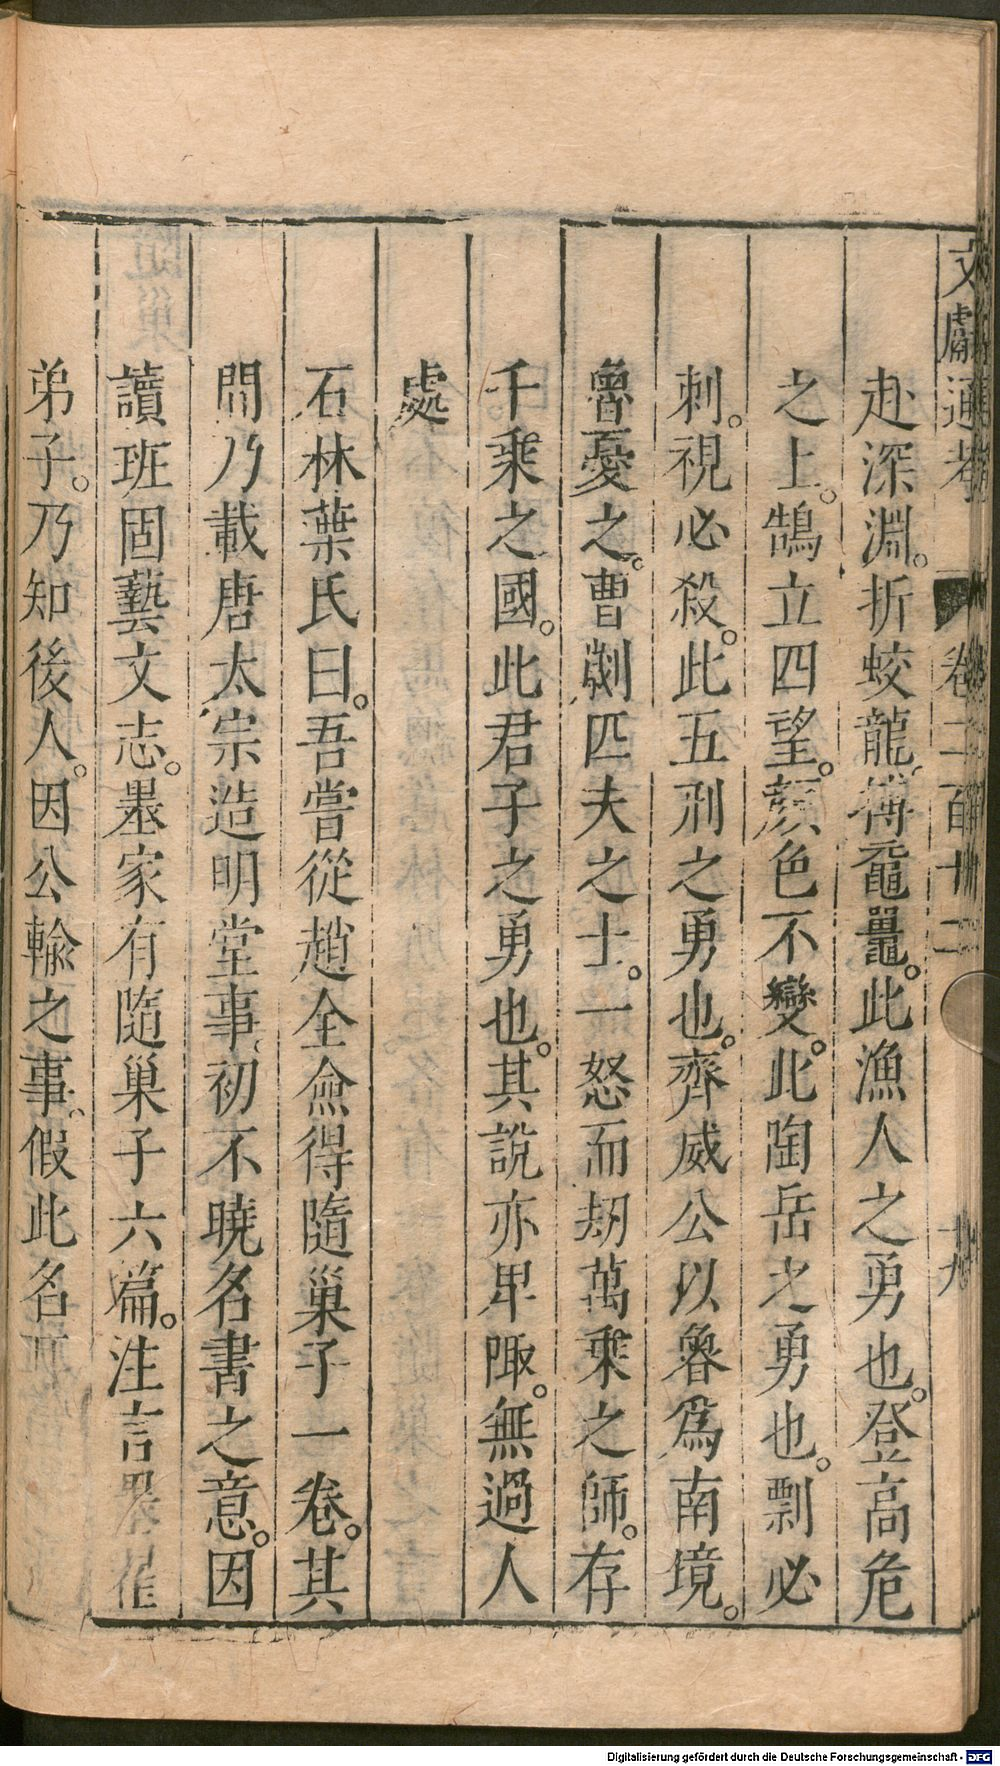 文獻通考 卷二百十二 十九
赴深淵。折蛟龍。搏黿鼉。此漁人之勇也。登高危
之上。鵠立四望。顏色不變。此陶岳之勇也。剽必
刺。視必殺。此五刑之勇也。齊威公以魯爲南境。
魯憂之。曹劌匹夫之士。一怒而刼萬乘之師。存
千乘之國。此君子之勇也。其說亦卑陬。無過人
處
石林葉氏曰。吾嘗從趙全僉得隨巢子一卷。其
間乃載唐太宗造明堂事。初不曉名書之意。因
讀班固藝文志。墨家有隨巢子六篇。注言墨翟
弟子。乃知後人。因公輸之事。假此名耳
Digitalisierung gefördert durch die Deutsche Forschungsgemeinschaft - DFG